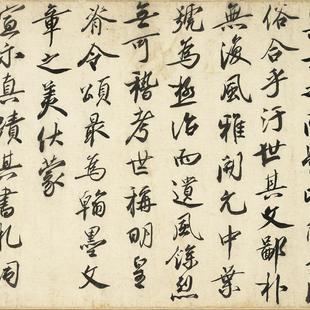 俗合乎汙世其文鄙朴
無復風雅開元中葉
號為極治而遺風餘烈
無可稽考世稱明皇
脊令頌最為翰墨文
章之美伏蒙
宣示真蹟其書札同